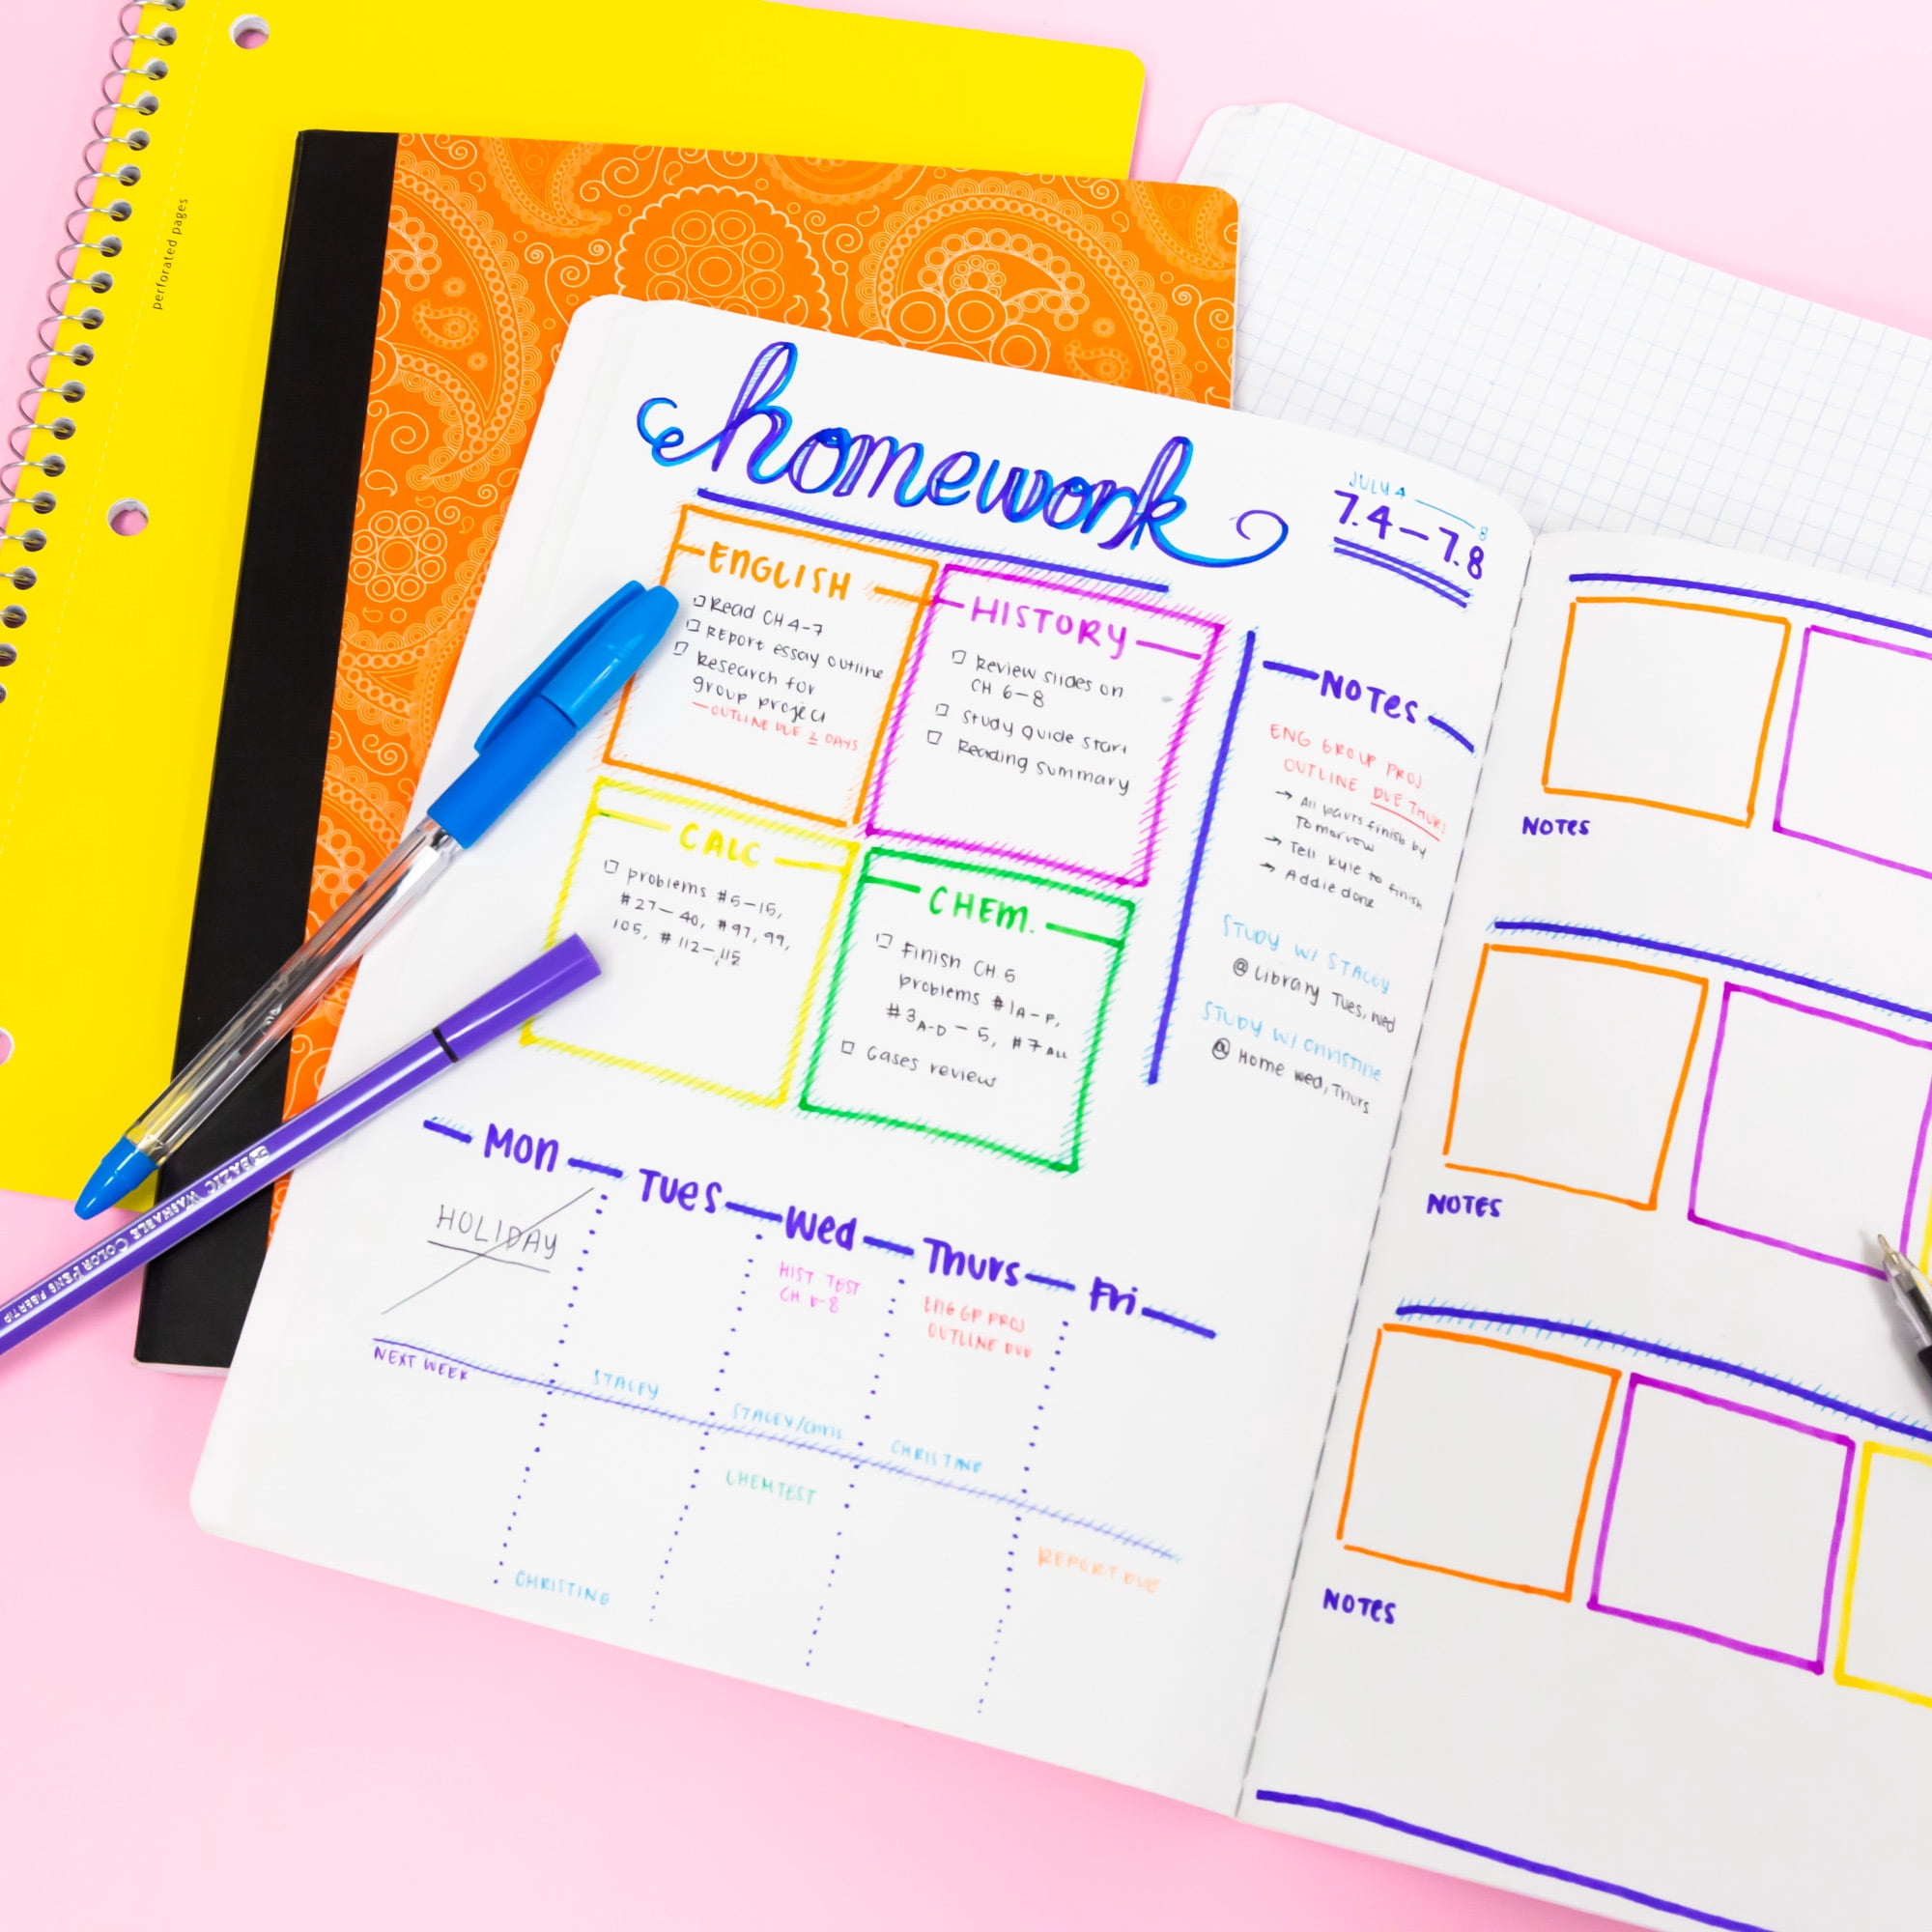 perforated pages
homework
JULY 4 — 8
7.4 — 7.8
ENGLISH
Read CH 4-7
Report essay outline
Research for
group project
- OUTLINE DUE 2 DAYS
HISTORY
Review slides on
CH 6-8
Study guide start
Reading summary
CALC
problems #5-15,
#27-40, #97, 99,
105, #112-115
CHEM.
Finish CH 5
problems #1A-F,
#3A-D - 5, #7 ALL
Gases review
NOTES
ENG GROUP PROJ
OUTLINE DUE THURS
→ All parts finish by
Tomorrow
→ Tell Kyle to finish
→ Addie done
STUDY W/ STACEY
@ Library Tues, Wed
STUDY W/ Christine
@ Home Wed, Thurs
Mon Tues Wed Thurs Fri
HOLIDAY
HIST TEST
CH 6-8
ENG GP PROJ
OUTLINE DUE
STACEY
STACEY/Chris
CHRISTINE
NEXT WEEK
CHEM TEST
REPORT DUE
CHRISTINE
NOTES
NOTES
NOTES
BAZIC WASHABLE COLOR PENS FIBERTIP